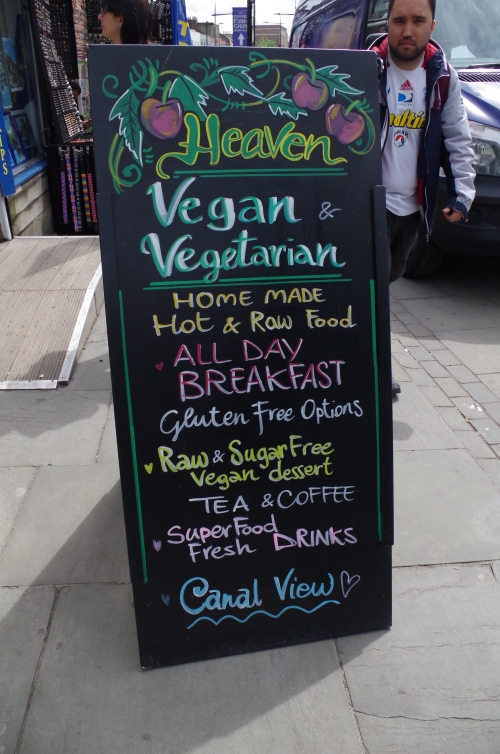 Heaven
Vegan &
Vegetarian
HOME MADE
Hot & Raw Food
ALL DAY
BREAKFAST
Gluten Free Options
Raw & Sugar Free
Vegan dessert
TEA & COFFEE
SuperFood
Fresh DRINKS
Canal View